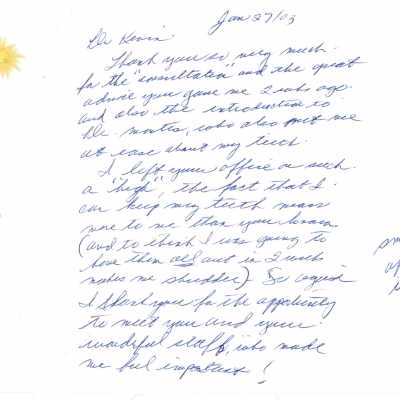 Jan 27/03
Dr Kevin:
Thank you so very much
for the "consultation" and the great
advice you gave me 2 wks ago.
and also the introduction to
Dr. Montes, who also put me
at ease about my teeth.
I left your office on such
a "high", the fact that I
can keep my teeth means
more to me than you know
(and to think I was going to
have them all out in 2 weeks
makes me shudder). So again
I thank you for the opportunity
to meet you and your
wonderful staff, who made
me feel important!